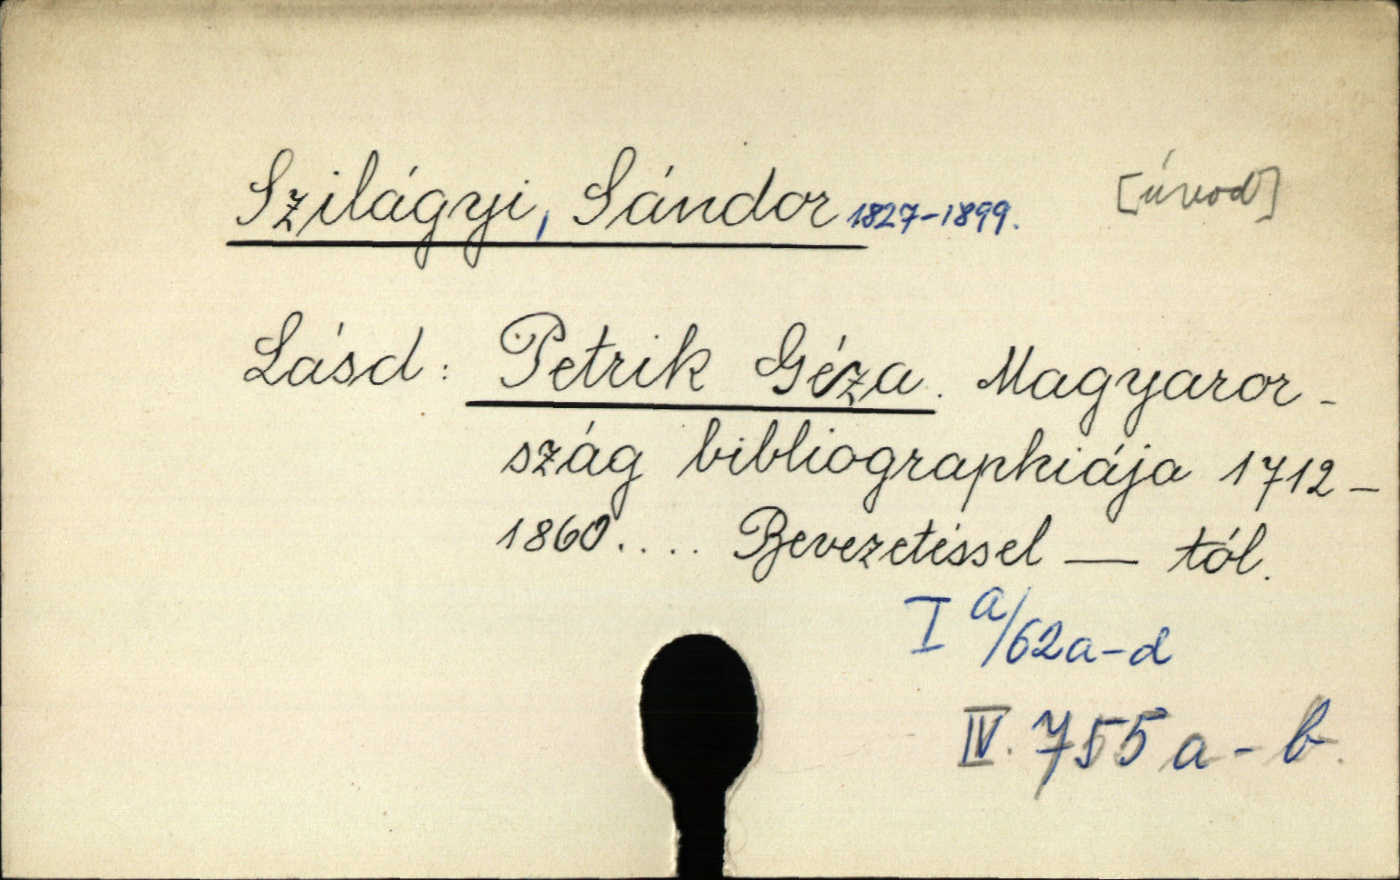 Szilágyi, Sándor 1827-1899. [úvod]
Lásd: Petrik Géza. Magyaror-
szág bibliographiája 1712-
1860.... Bevezetéssel — tól.
I a/62a-d
IV. 755 a - b.